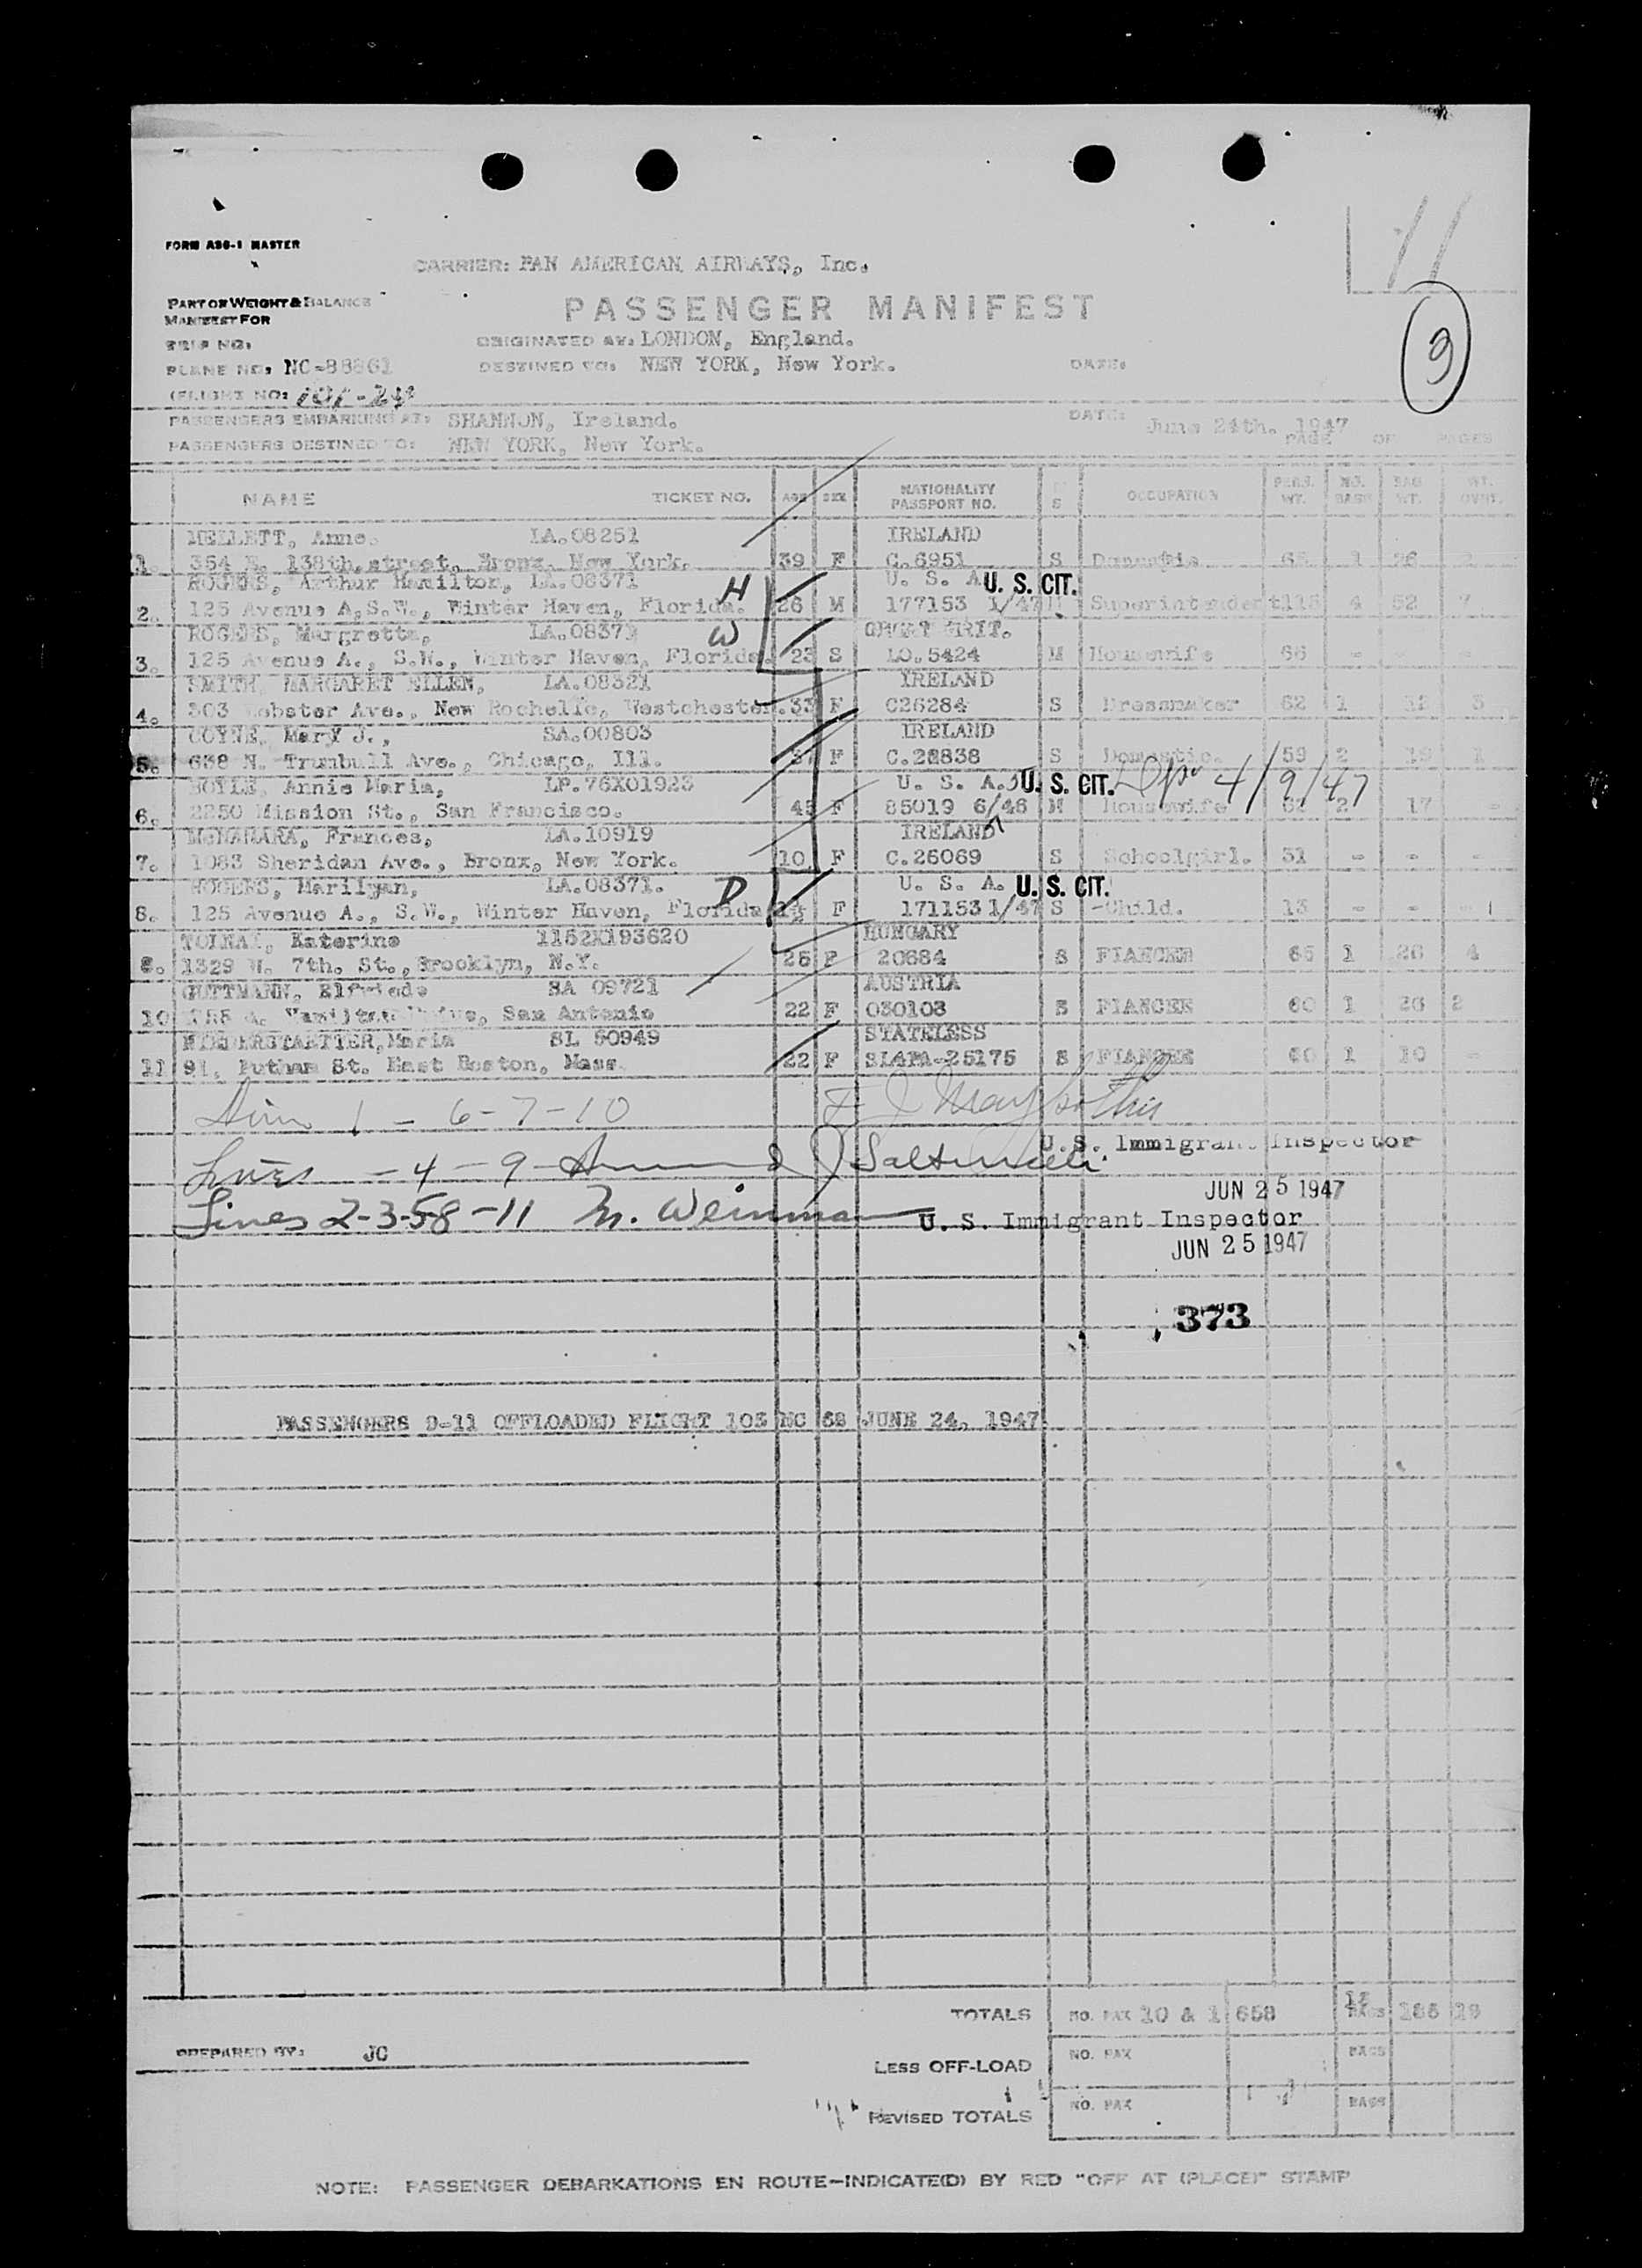 11
FORM ASG-1 MASTER
CARRIER: PAN AMERICAN AIRWAYS, Inc.
PART OF WEIGHT & BALANCE
MANIFEST FOR
PASSENGER MANIFEST
3
TRIP NO:
ORIGINATED AT: LONDON, England.
PLANE NO: NC-88861
DESTINED TO: NEW YORK, New York.
DATE:
(FLIGHT NO:
PASSENGERS EMBARKING AT: SHANNON, Ireland.
DATE: June 24th. 1947
PASSENGERS DESTINED TO: NEW YORK, New York.
PAGE OF PAGES
NAME TICKET NO. AGE SEX NATIONALITY PASSPORT NO. S OCCUPATION PERS. WT. NO. BAGS BAG WT. WT. OVWT.
MELLETT, Anne. LA.08251 IRELAND
1. 354 E. 138th.street, Bronx, New York. 39 F C.6951 S 26
ROGERS, Arthur Hamilton, LA.08371 H U. S. A U. S. CIT.
2. 125 Avenue A,S.W., Winter Haven, Florida. 26 M 177153 1/47 Superintendent 115 4 52 7
ROGERS, Margretta, LA.08371 W GREAT BRIT.
3. 125 Avenue A., S.W., Winter Haven, Florida. 23 S LO.5424 M Housewife 66 - - -
SMITH, MARGARET ELLEN, LA.08321 IRELAND
4. 303 Webster Ave., New Rochelle, Westchester. 33 F C26284 S Dressmaker 62 1 3
COYNE, Mary J., SA.00803 IRELAND
5. 638 N. Trumbull Ave., Chicago, Ill. 37 F S Domestic. 59 2 19 1
BOYLE, Annie Maria, LP.76X01923 U. S. A. U. S. CIT. Dpr 4/9/47
6. 2250 Mission St., San Francisco. 45 F 85019 6/46 M Housewife 2 17 -
McNAMARA, Frances, LA.10919 IRELAND
7. 1083 Sheridan Ave., Bronx, New York. 10 F C.26069 S Schoolgirl. 31 - - -
ROGERS, Marilyan, LA.08371. D U. S. A. U. S. CIT.
8. 125 Avenue A., S.W., Winter Haven, Florida F 171153 1/47 S -Child. 13 - - -
TOLNAI, Katerine 1152X193620 HUNGARY
1329 W. 7th. St., Brooklyn, N.Y. 25 F 20684 S FIANCEE 65 1 26 4
GUTTMANN, Elfriede SA 09721 AUSTRIA
10 Hamilton Drive, San Antonio 22 F 030103 S FIANCEE 60 1 26 2
NIEDERSTAETTER, Maria SL 50949 STATELESS
11 91, Putham St. East Boston, Mass. 22 F 25175 S FIANCEE 60 1 10 -
1 - 6-7-10
U.S. Immigrant Inspector
Lines - 4 - 9
JUN 25 1947
Lines 2-3-5-8-11 M. Weinman U. S. Immigrant Inspector
JUN 25 1947
373
PASSENGERS 9-11 OFFLOADED FLIGHT 103 NC 88 JUNE 24, 1947
TOTALS NO. PAX 10 & 1 658 12 BAGS 186 19
PREPARED BY: JC
LESS OFF-LOAD NO. PAX BAGS
REVISED TOTALS NO. PAX BAGS
NOTE: PASSENGER DEBARKATIONS EN ROUTE-INDICATE(D) BY RED "OFF AT (PLACE)" STAMP